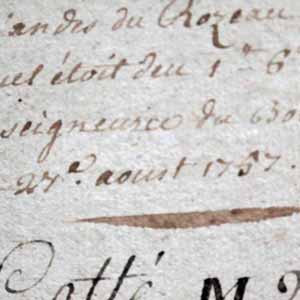 du Rozeau
étoit deu 1
seigneurie du
27e. aoust 1757.
Cotté M